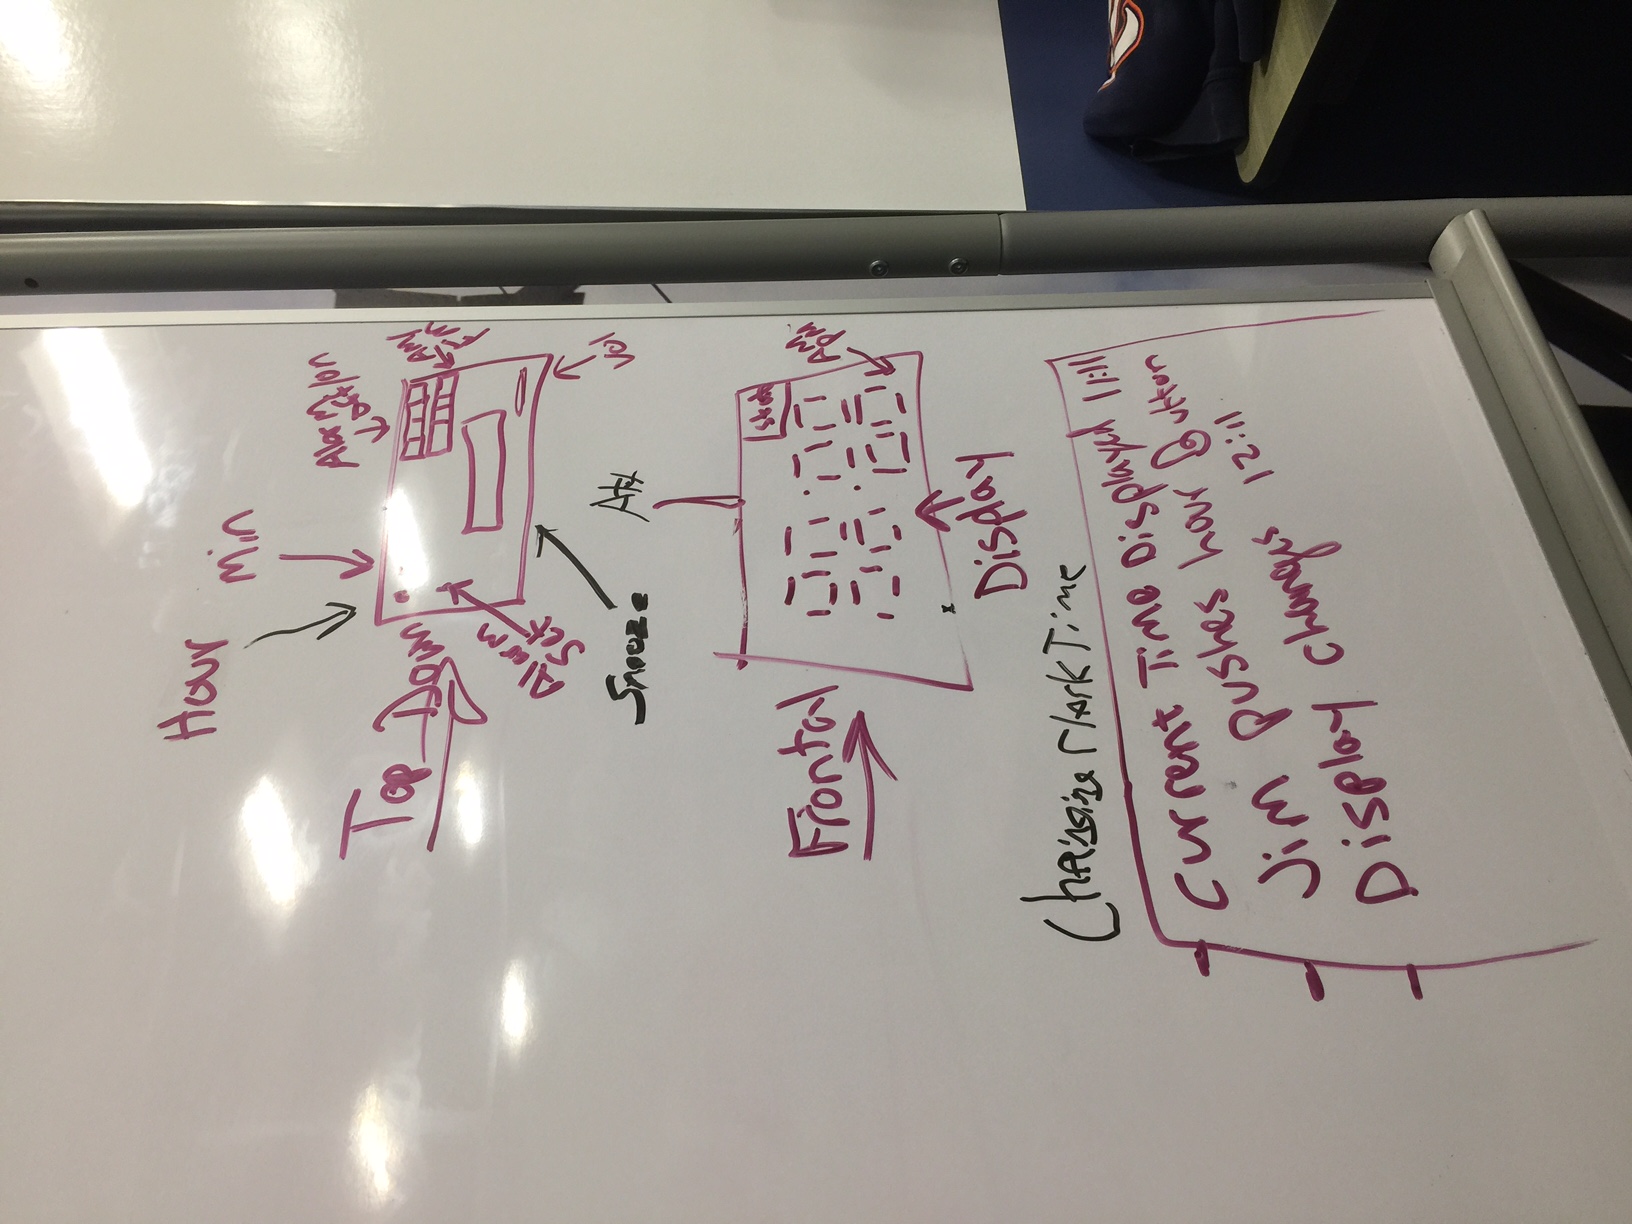 Hour
Min
Alarm
off/on
Top Down
AM/
FM
Alarm
Set
Snooze
Vol
Frontal
AM
PM
Display
Clock Time
Current Time Displayed 11:11
Jim pushes hour Button
Display changes 12:11